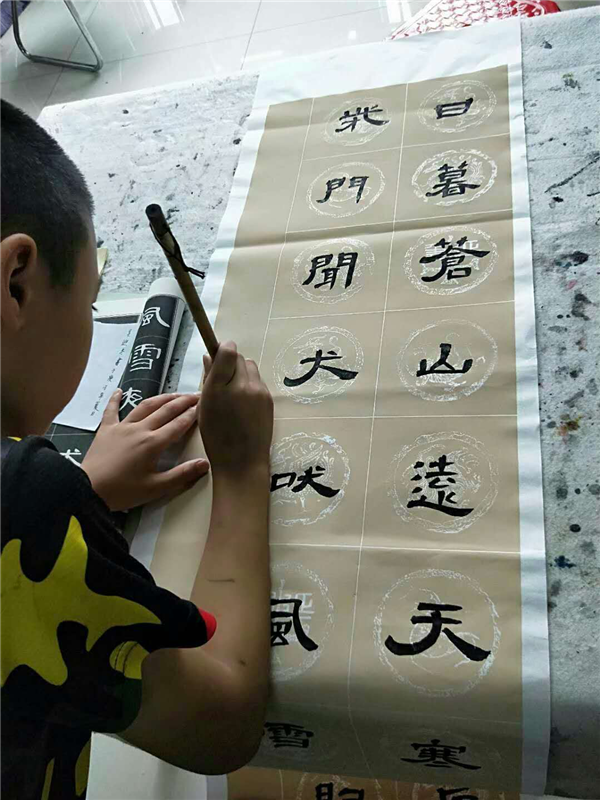 日暮蒼山遠天寒
柴門聞犬吠風雪
風雪夜